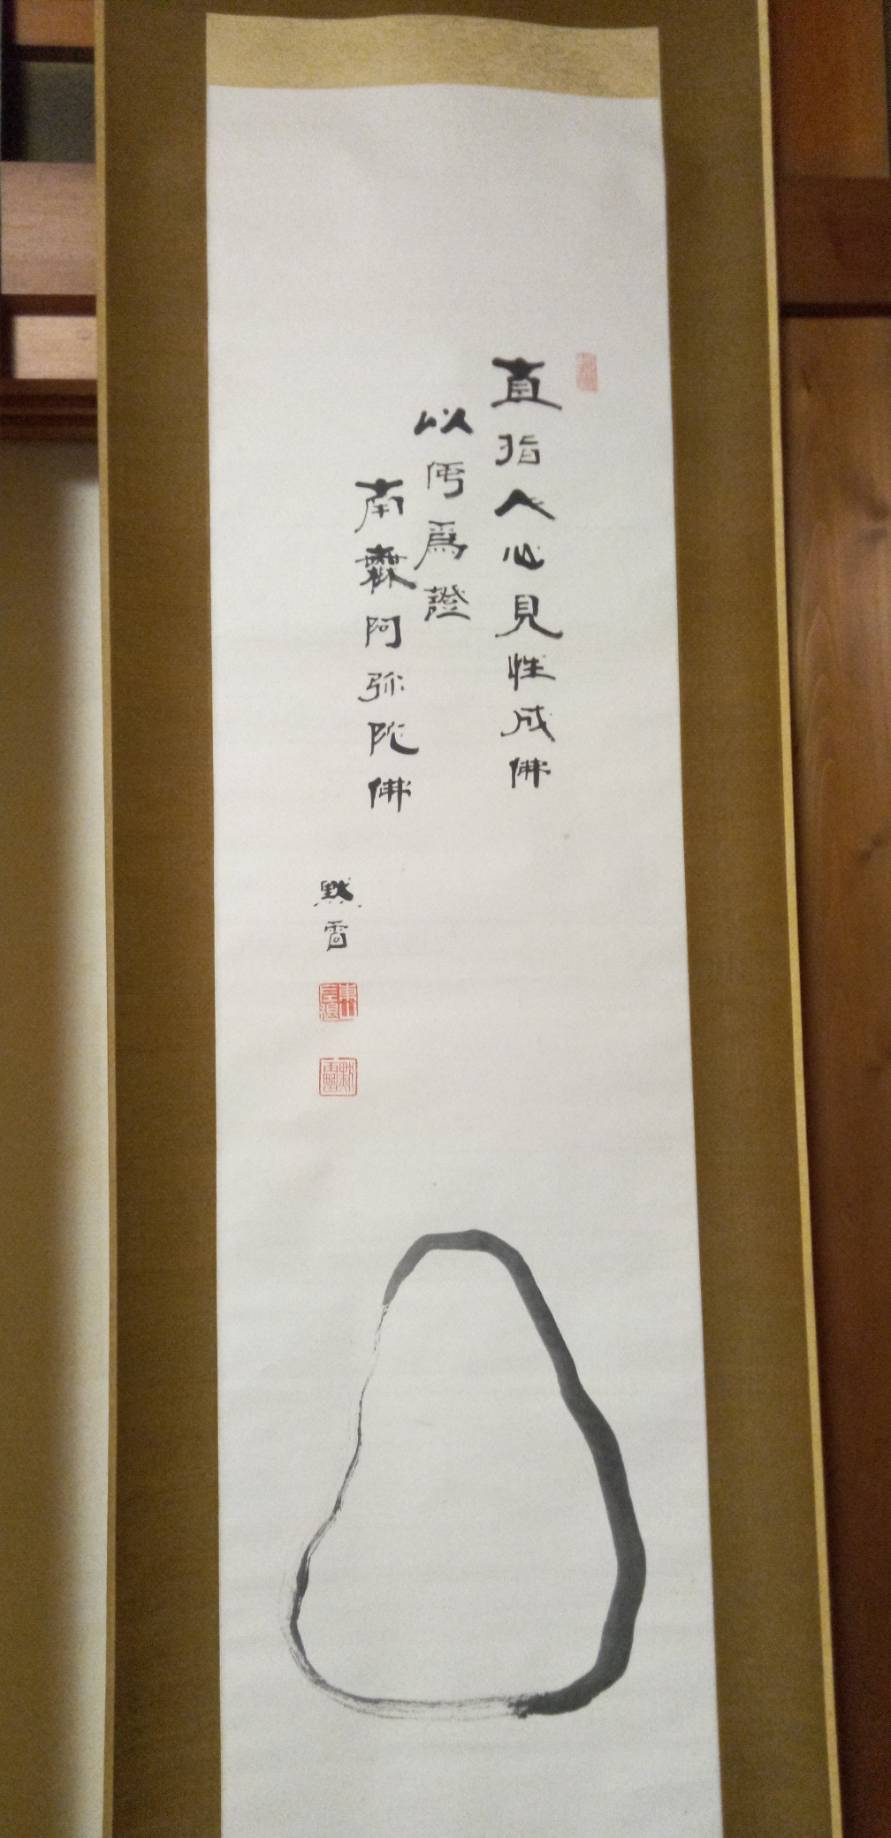 直指人心見性成佛
以何為證
南無阿弥陀佛
默雷